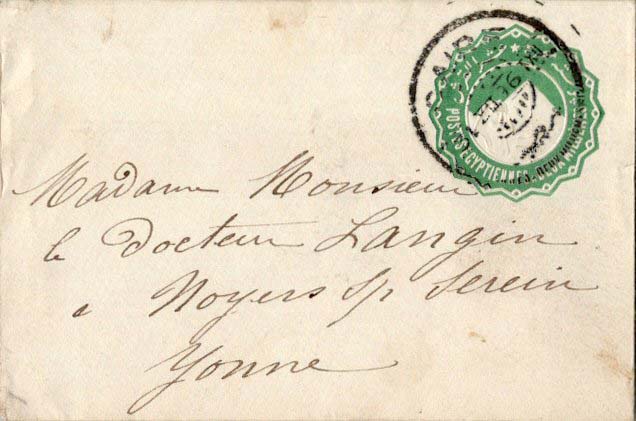 CAIRE
POSTES EGYPTIENNES. DEUX MILLIEMES
Madame Monsieur
le docteur Langin
à Noyers s/ Serein
Yonne